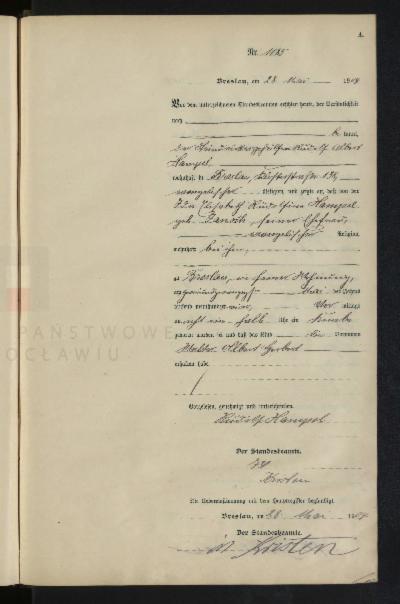 A.
Nr. 1125
Breslau, am 28. Mai 1909
Vor dem unterzeichneten Standesbeamten erschien heute, der Persönlichkeit
nach
be kannt,
der Rudolf Albert
Hampel
wohnhaft in Breslau,
evangelischer Religion, und zeigte an, daß von der
Ida Elisabeth Hampel
geb. seiner Ehefrau,
evangelischer Religion
wohnhaft bei ihm,
zu Breslau, in seiner Wohnung,
am Mai des Jahres
tausend neunhundert neun, Vor mittags
um acht ein halb Uhr ein Knabe
geboren worden sei und daß das Kind die Vornamen
Walter Albert Herbert
erhalten habe.
Vorgelesen, genehmigt und unterschrieben.
Rudolf Hampel
Der Standesbeamte.
Kristen
Die Uebereinstimmung mit dem Hauptregister beglaubigt.
Breslau, am 28. Mai 1909
Der Standesbeamte.
Kristen
PAŃSTWOWE
OCŁAWIU